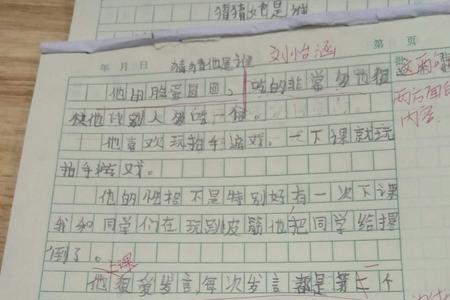 猜猜她是谁
年 月 日
猜猜他是谁
刘怡涵
第 页
这两
他的脸蛋圆圆,吃的非常多
使他比别人
他喜欢玩拍手游戏。一下课就玩
拍手游戏。
两方面
内容
他的性格不是特别好有一次下课
我和同学们在玩跳皮筋他把同学给撞
倒了。
上课
他很爱发言,每次发言都是第一个